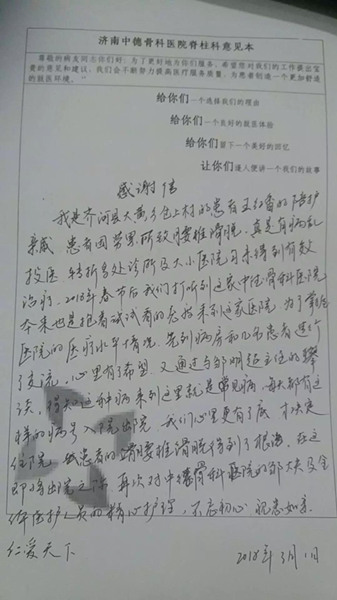 济南中德骨科医院脊柱科意见本
尊敬的病友同志你们好，为了更好地为你们服务，希望您对我们的工作提出宝
贵的意见和建议，我们会不断努力提高医疗服务质量，为患者创造一个更加舒适
的就医环境。
给你们一个选择我们的理由
给你们一个良好的就医体验
给你们留下一个美好的回忆
让你们逢人便讲一个我们的故事
感谢信
我是齐河县大黄乡仓上村的患者王红香的陪护
亲戚 患者因劳累所致腰椎滑脱，真是有病乱
投医 转折多处诊所及大小医院 均未得到有效
治疗。2018年春节后我们打听到这家中德骨科医院
本来也是抱着试试看的态度来到这家医院 为了掌握
医院的医疗水平情况 先到病房和几名患者进行
了交流，心里有了希望 又通过与邹明超主任的攀
谈，得知这种病来到这里就是常见病 每天都有这
样的病号入院出院 我们心里更有了底 才决定
住院 我患者的腰椎滑脱得到了根治 在这
即将出院之际 再次对中德骨科医院的邹大夫及全
体医护人员的精心护理，不忘初心 祝患如亲
仁爱天下
2018年3月1日